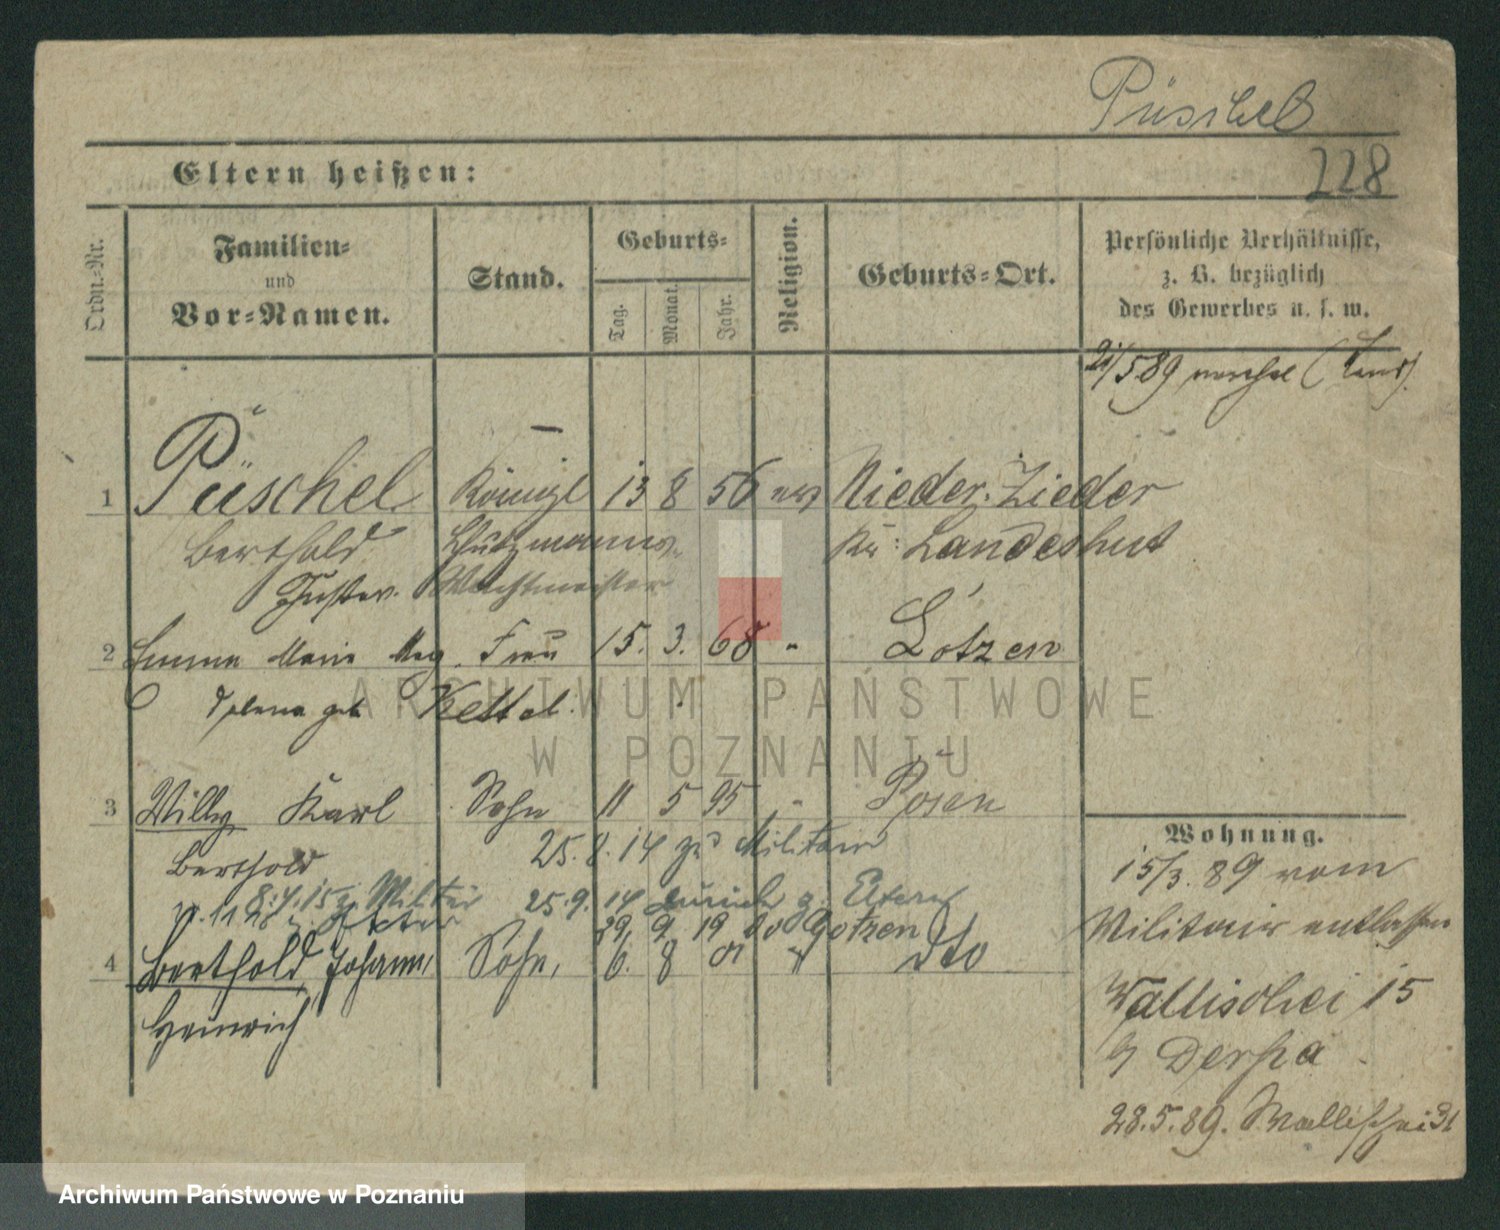 Püschel
Eltern heißen:
228
Ordn.-Nr.
Familien-
und
Vor-Namen.
Stand.
Geburts-
Tag.
Monat.
Jahr.
Religion.
Geburts-Ort.
Persönliche Verhältnisse,
z. B. bezüglich
des Gewerbes u. s. w.
21/5 89
1 Püschel Königl 13 8 56 ev Nieder-Zieder
Berthold Schutzmanns- Kr: Landeshut
Gustav. Wachtmeister
2 Emma Marie Mag. Frau 15. 3. 68 " Lötzen
Helena geb Kettel.
3 Willy Karl Sohn 11 5 95 " Posen
Berthold 25. 8. 14 zu Militair
8.4.15 z. Militär 25.9.14 zurück z. Eltern
29. 9. 19 Lötzen
4 Berthold Johann, Sohn, 6. 8 01 " dto
Heinrich
Wohnung.
15/3. 89 vom
Militair entlassen
Wallischei 15
b/ Derpa
28.5.89. Wallischei 31
ARCHIWUM PAŃSTWOWE
W POZNANIU
Archiwum Państwowe w Poznaniu